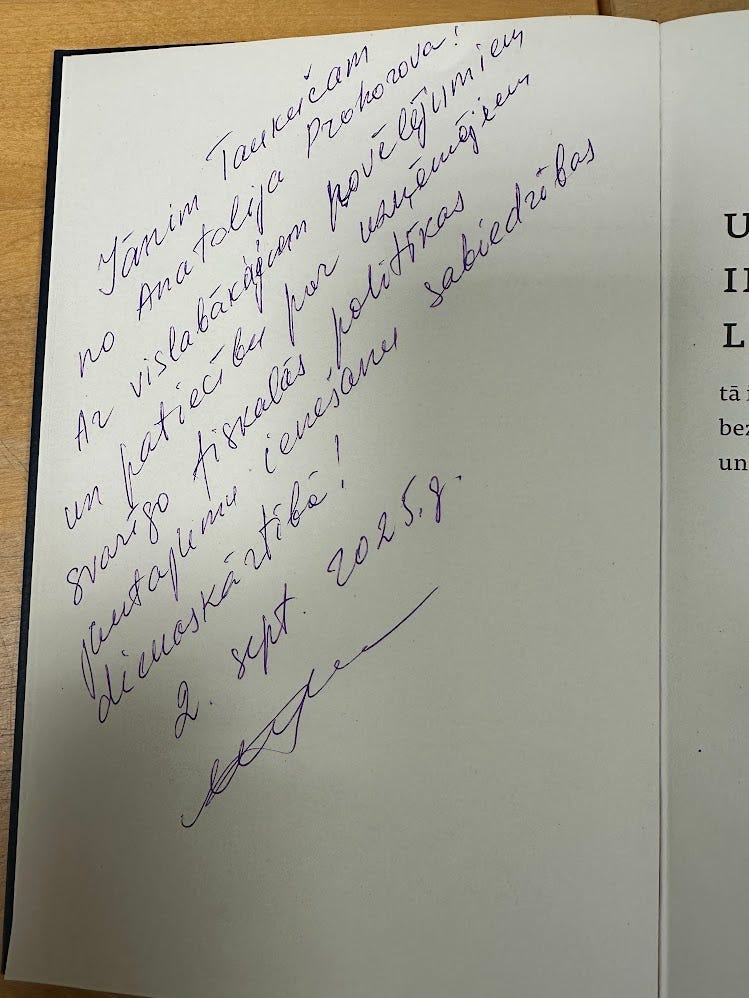 Jānim Taukačam
no Anatolija Prohorova!
Ar vislabākajiem novēlējumiem
un patiecību par uzņēmājiem
svarīgo fiskalās politikas
jautajumu ienešanu sabiedrības
dienaskārtībā!
2. sept. 2025.g.
U
IE
L
tā
bez
un